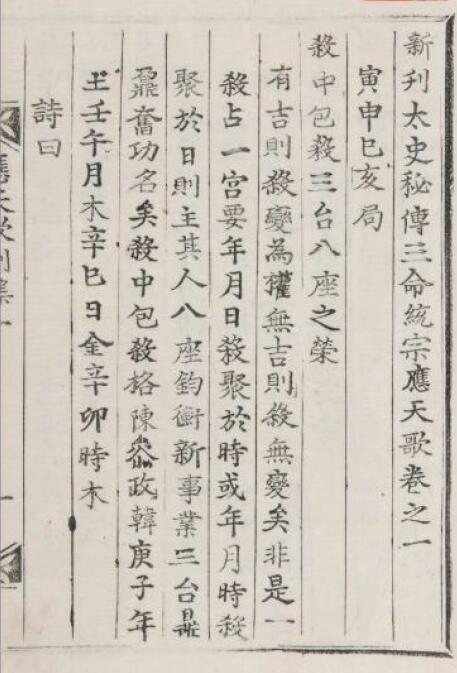 新刊太史秘傳三命統宗應天歌卷之一
寅申巳亥局
殺中包殺三台八座之榮
有吉則殺變為權無吉則殺無變矣非是一
殺占一宮要年月日殺聚於時或年月時殺
聚於日則主其人八座鈞衡新事業三台鼎
鼐奮功名矣殺中包殺格陳叅政韓庚子年
土壬午月木辛巳日金辛卯時木
詩曰